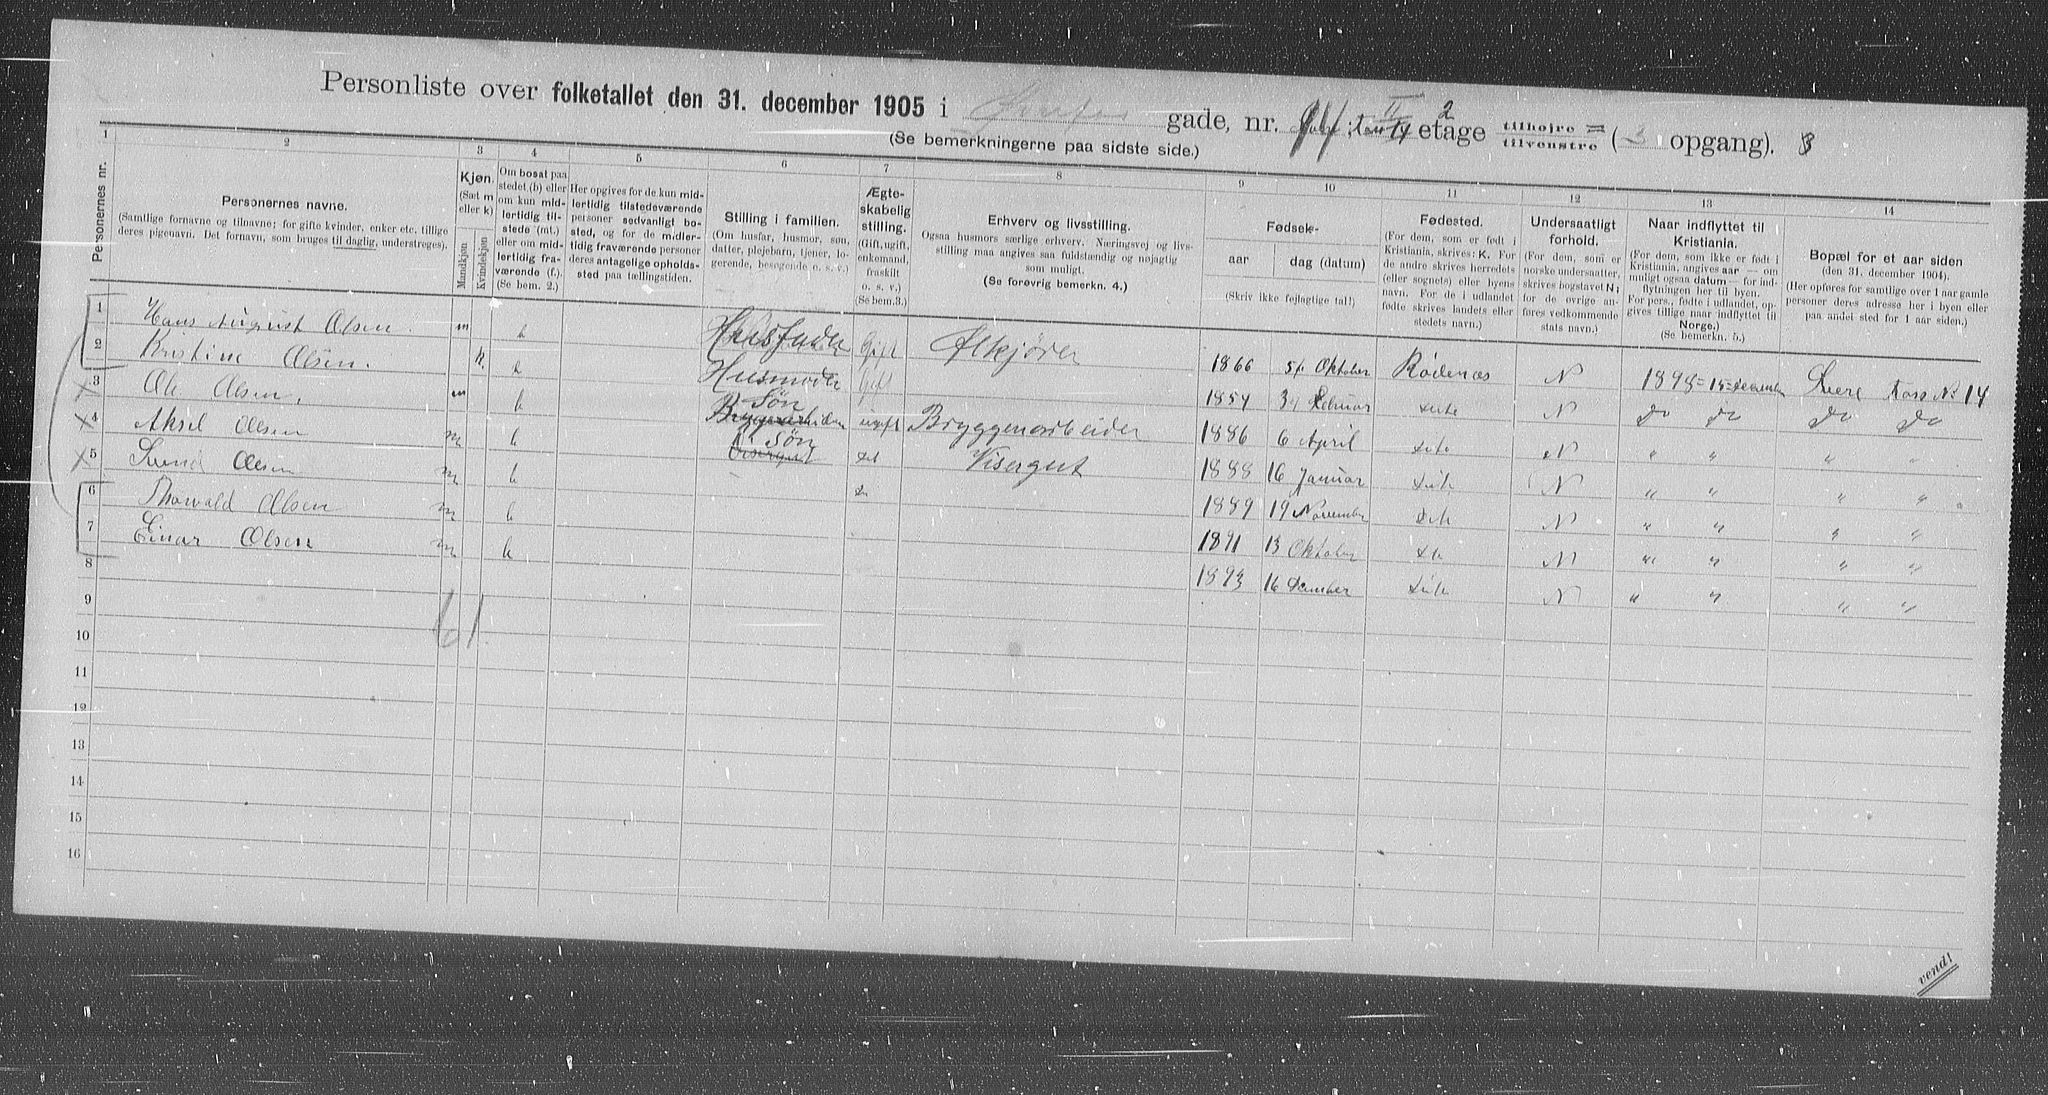 Personliste over folketallet den 31. december 1905 i gade, nr. 14 II 2 etage tilhøjre = tilvenstre (3 opgang). 3
(Se bemerkningerne paa sidste side.)
1 2 3 4 5 6 7 8 9 10 11 12 13 14
Personernes nr.
Personernes navne.
(Samtlige fornavne og tilnavne; for gifte kvinder, enker etc. tillige
deres pigenavn. Det fornavn, som bruges til daglig, understreges).
Kjøn.
(Sæt m
eller k)
Mandkjøn
Kvindekjøn
Om bosat paa
stedet (b) eller
om kun mid-
lertidig til-
stede (mt.)
eller om mid-
lertidig fra-
værende (f.).
(Se bem. 2.)
Her opgives for de kun mid-
lertidig tilstedeværende
personer sedvanligt bo-
sted, og for de midler-
tidig fraværende personer
deres antagelige opholds-
sted paa tællingstiden.
Stilling i familien.
(Om husfar, husmor, søn,
datter, plejebarn, tjener, lo-
gerende, besøgende o. s. v.)
Ægte-
skabelig
stilling.
(Gift, ugift,
enkemand,
fraskilt
o. s. v.)
(Se bem. 3.)
Erhverv og livsstilling.
Ogsaa husmors særlige erhverv. Næringsvej og livs-
stilling maa angives saa fuldstændig og nøjagtig
som muligt.
(Se forøvrig bemerkn. 4.)
Fødsels-
aar dag (datum)
(Skriv ikke fejlagtige tal!)
Fødested.
(For dem, som er født i
Kristiania, skrives: K. For
de andre skrives herredets
(eller sognets) eller byens
navn. For de i udlandet
fødte skrives landets eller
stedets navn.)
Undersaatligt
forhold.
(For dem, som er
norske undersaatter,
skrives bogstavet N;
for de øvrige an-
føres vedkommende
stats navn.)
Naar indflyttet til
Kristiania.
(For dem, som ikke er født i
Kristiania, angives aar — om
muligt ogsaa datum — for ind-
flytningen her til byen.
For pers., fødte i udlandet, op-
gives tillige naar indflyttet til
Norge.)
(Se bemerkn. 5.)
Bopæl for et aar siden
(den 31. december 1904).
(Her opføres for samtlige over 1 aar gamle
personer deres adresse her i byen eller
paa andet sted for 1 aar siden.)
1 Hans August Olsen. m b Husfader Gift 1866 5/ Oktober Rödenæs N 1898 = 15 = December No 14
2 Kristine Olsen. k. b Husmoder Gift 1854 3/ Februar dito N Do Do Do Do
3 Ole Olsen, m b Søn ugift Bryggenarbeider 1886 6 April dito N " " " "
4 Aksel Olsen m b Søn Visergut 1888 16 Januar dito N " " " "
5 Olsen m b 1889 19 November dito N " " " "
6 Thorvald Olsen m b 1891 13 Oktober dito N " " " "
7 Einar Olsen m b 1893 16 December dito N " " " "
8
9
10
11
12
13
14
15
16
vend!